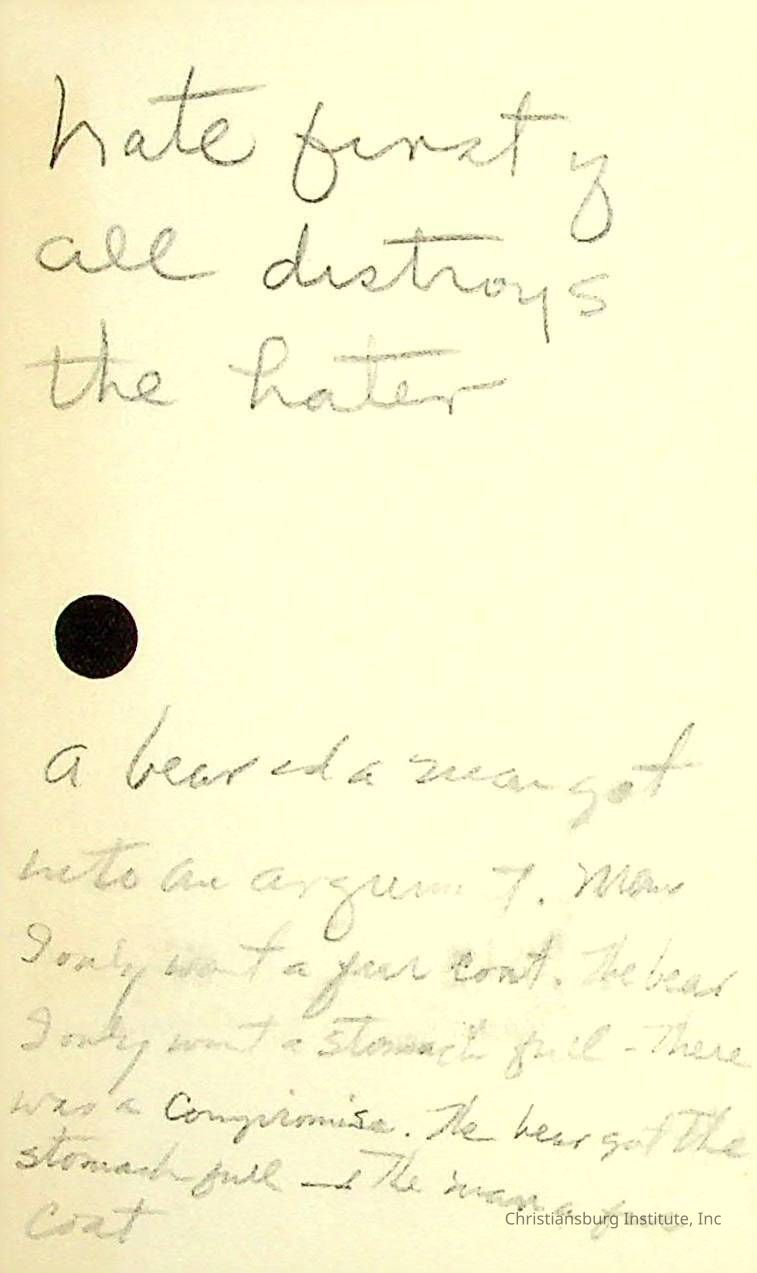 hate first y
all distroys
the hater
a bear and a man got
into an argum t. Man
I only want a fur coat. The bear
I only want a stomach full - There
was a Compromise. The bear got the
stomach full and the man a fur
Coat
Christiansburg Institute, Inc